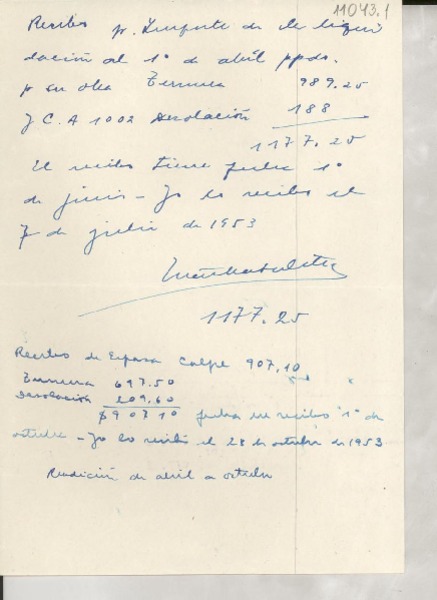 11043.1
Recibo p. Importe de la liqui
dación al 1° de abril ppdo.
p su obra Ternura 989.25
y C. A 1002 Desolación 188
1177.25
El recibo tiene fecha 1°
de junio - Yo lo recibo el
7 de julio de 1953
1177.25
Recibo de Espasa Calpe 907.10
Ternura 697.50
Desolación 209.60
$ 907.10 fecha en recibo "1° de
octubre - Yo lo recibí el 28 de octubre de 1953
Rendición de abril a octubre